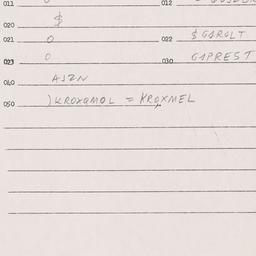 011 0 012
020 $
021 0 022 $ GAROLT
023 0 030 GAPREST
040 AJZN
050 )KROXAMOL = KROXMEL